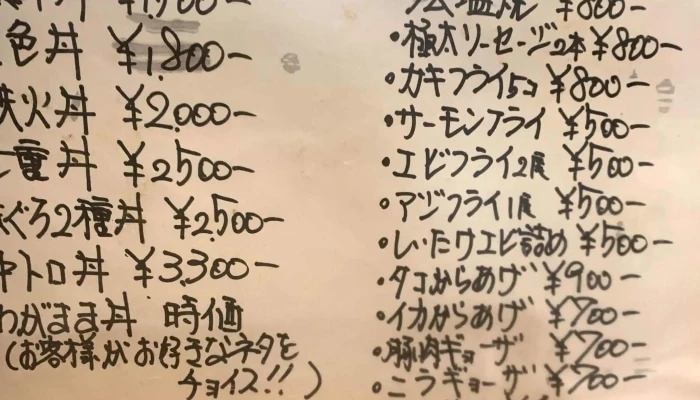 ¥1,900-
色丼 ¥1,800-
鉄火丼 ¥2,000-
重丼 ¥2500-
ぐろ2種丼 ¥2,500-
中トロ丼 ¥3,300-
わがまま丼 時価
(お客様がお好きなネタを
チョイス!!)
¥800-
・極太ソーセージ2本 ¥800-
・カキフライ5コ ¥800-
・サーモンフライ ¥500-
・エビフライ2尾 ¥500-
・アジフライ1尾 ¥500-
・しいたけエビ詰め ¥500-
・タコからあげ ¥900-
・イカからあげ ¥700-
・豚肉ギョーザ ¥700-
・ニラギョーザ ¥700-